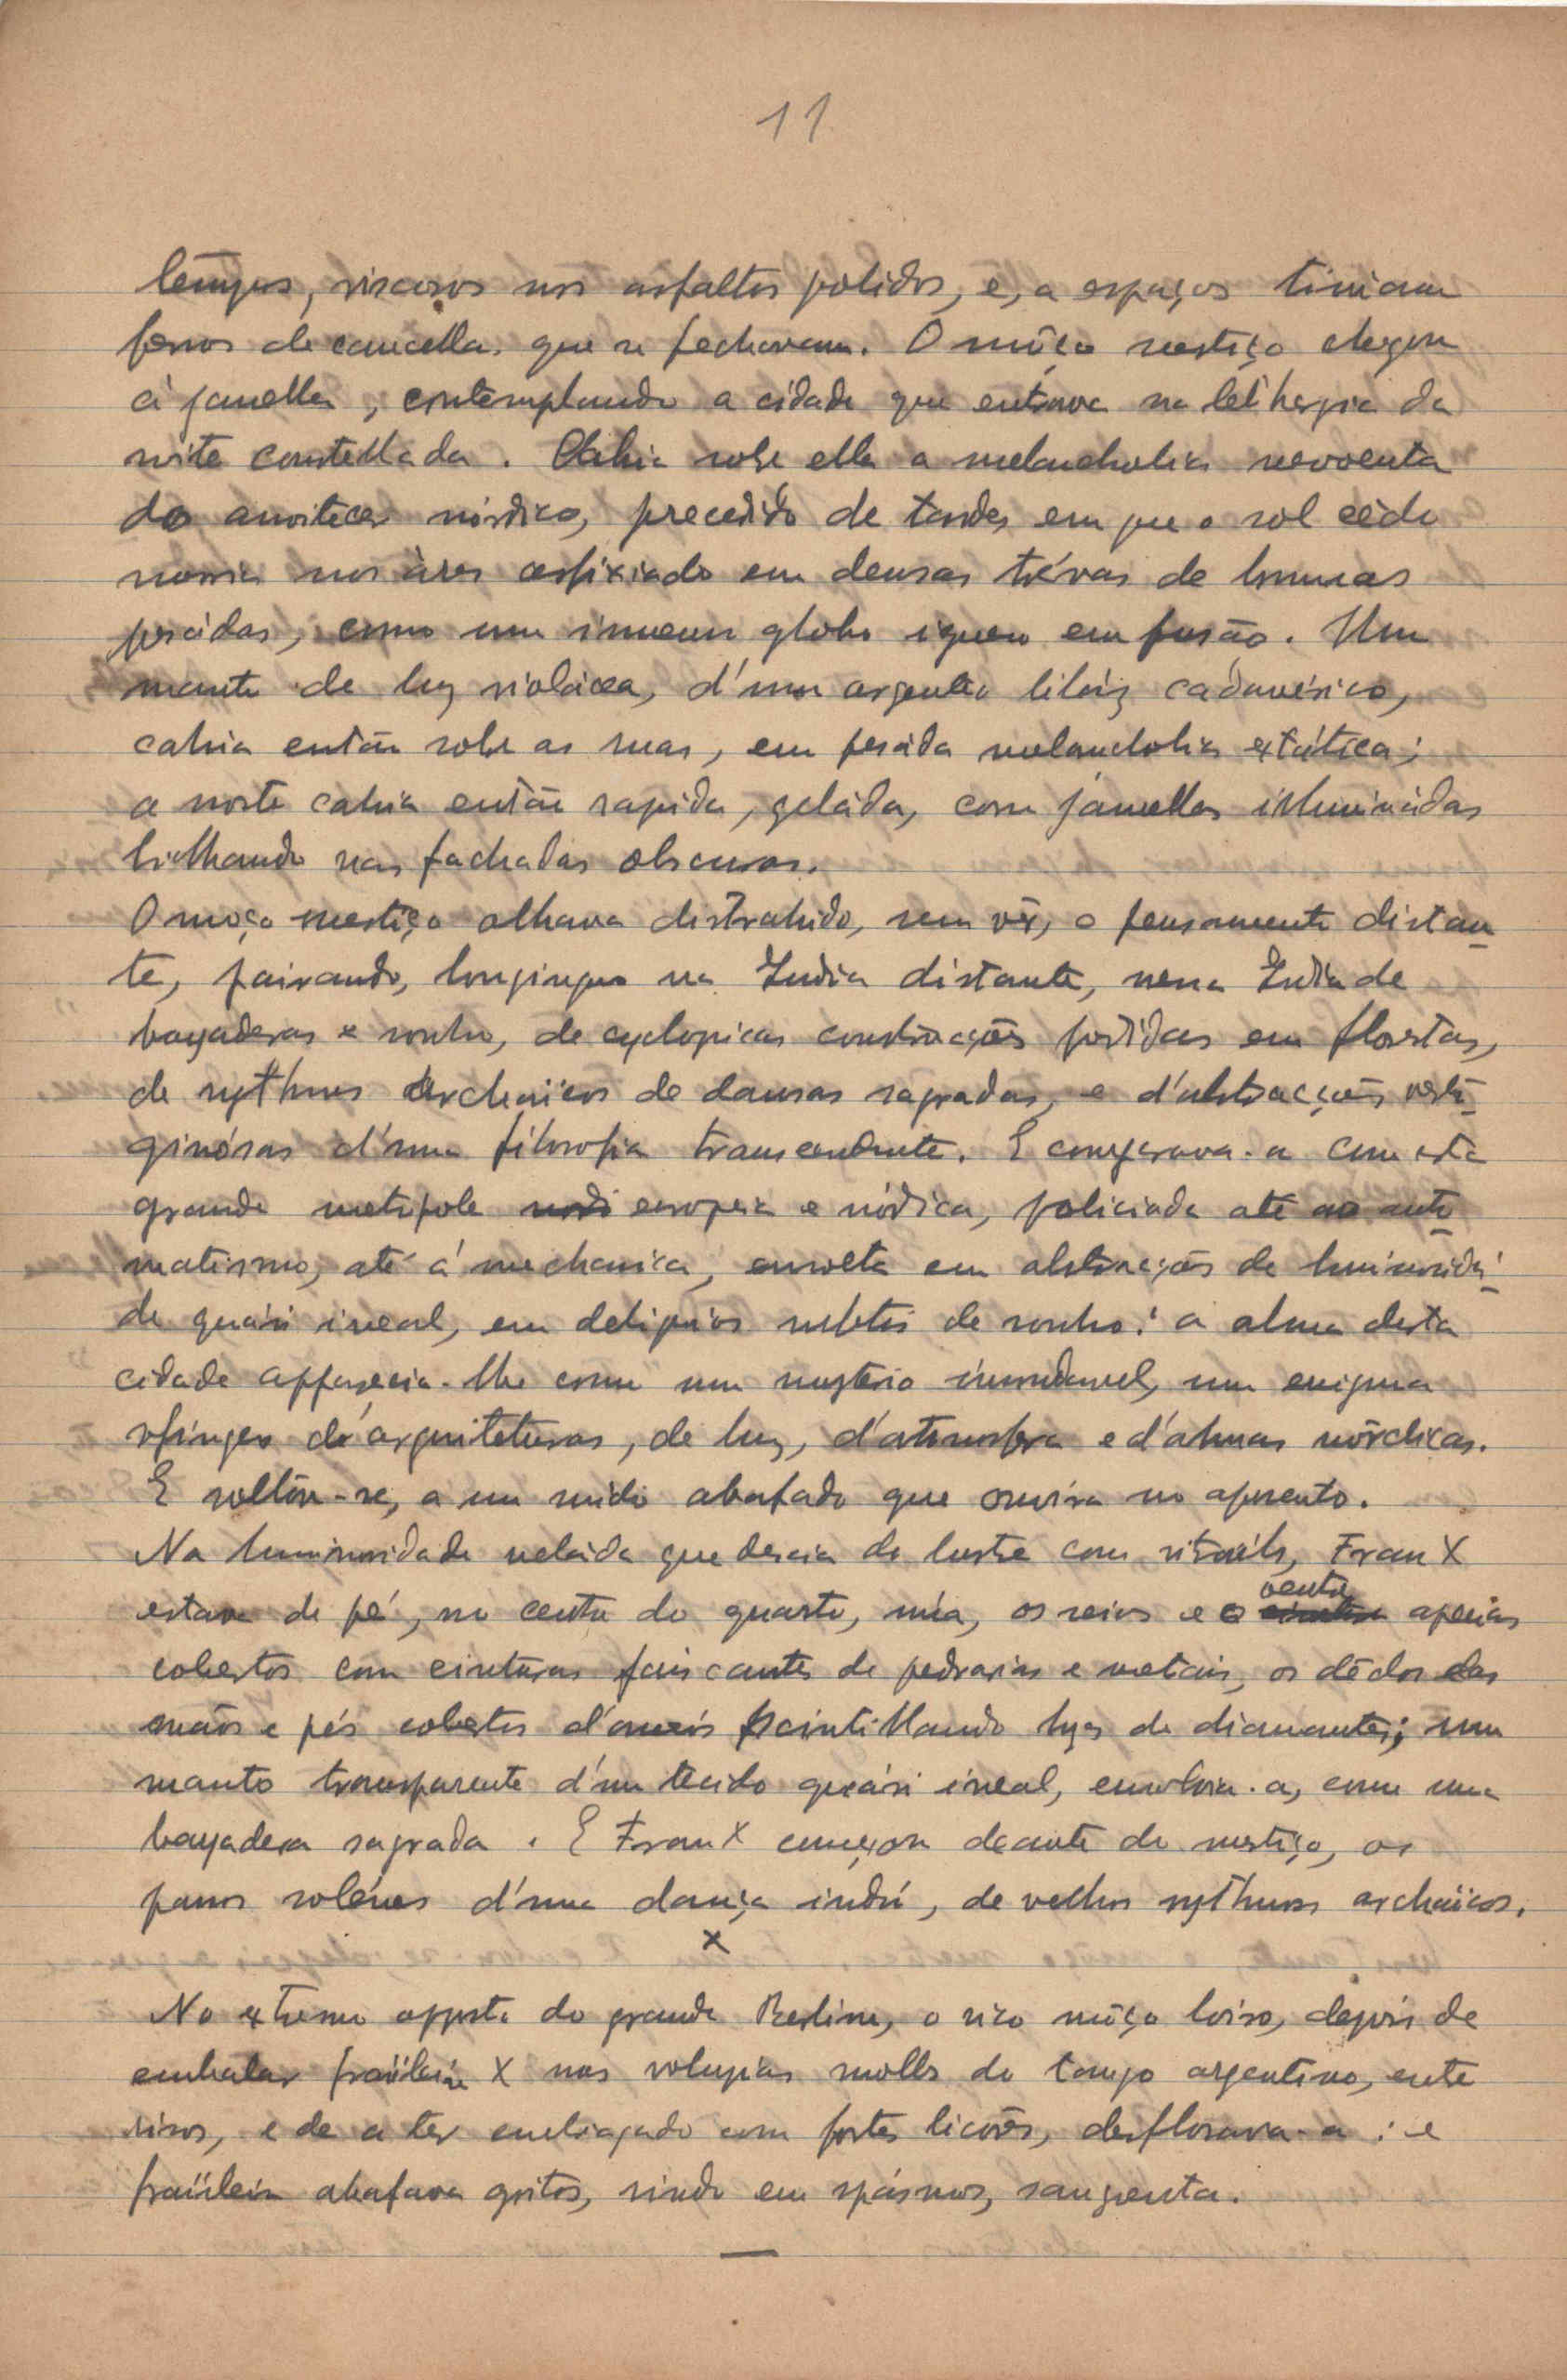 11
viscosos nos asfaltos polidos, e, a espaços tiniam
ferros de cancella que se fechavam. O môço mestiço chegou
á janella, contemplando a cidade que entrava na lethargia da
noite constellada. Cahia sobre ella a melancholia nevoenta
do anoitecer nórdico, precedido de tardes em que o sol cêdo
morria nos áres asfixiado em densas trévas de brumas
pesádas, como um immenso globo igneo em fusão. Um
manto de luz violácea, d'um argenteo liláz cadavérico,
cahia então sobre as ruas, em pesáda melancholia extática;
a noite cahia então rapida, geláda, com janellas illuminádas
brilhando nas fachadas obscuras.
O moço mestiço olhava distrahido, sem vêr, o pensamento distan-
te, pairando, longinquo na India distante, nessa India de
bayaderas e sonho, de cyclopicas construcções perdidas em florestas,
de rythmos archaïcos de dansas sagradas, e d'abstracções verti-
ginósas d'uma filosofia transcendente. E comparava-a com esta
grande metrópole europeia e nórdica, policiada até ao auto-
matismo, até á mechanica, envolta em abstracções de luminosidá-
de quási irreal, em deliquios subtis de sonho: a alma desta
cidade apparecia-lhe como um mysterio insondavel, um enigma
sfingeo de arquiteturas, de luz, d'atmosfera e d'almas nórdicas.
E voltou-se, a um ruido abafado que ouvira no aposento.
Na luminosidade veláda que descia do lustre com vitraes, Frau X
estava de pé, no centro do quarto, núa, os seios e o ventre apenas
cobertos com cinturas faiscantes de pedrarias e metais, os dêdos das
mãos e pés cobertos d'aneis scintillando luzes de diamantes; um
manto transparente d'um tecido quási irreal, envolvia-a, como uma
bayadera sagrada. E Frau X começou deante do mestiço, os
passos solénes d'uma dança indú, de velhos rythmos archaïcos.
x
No extremo opposto do grande Berlim, o rico môço loiro, depois de
embalar fraülein X nas volupias molles do tango argentino, entre
risos, e de a ter embriagado com fortes licôres, desflorava-a: e
fraülein abafava gritos, rindo em spásmos, sangrenta.